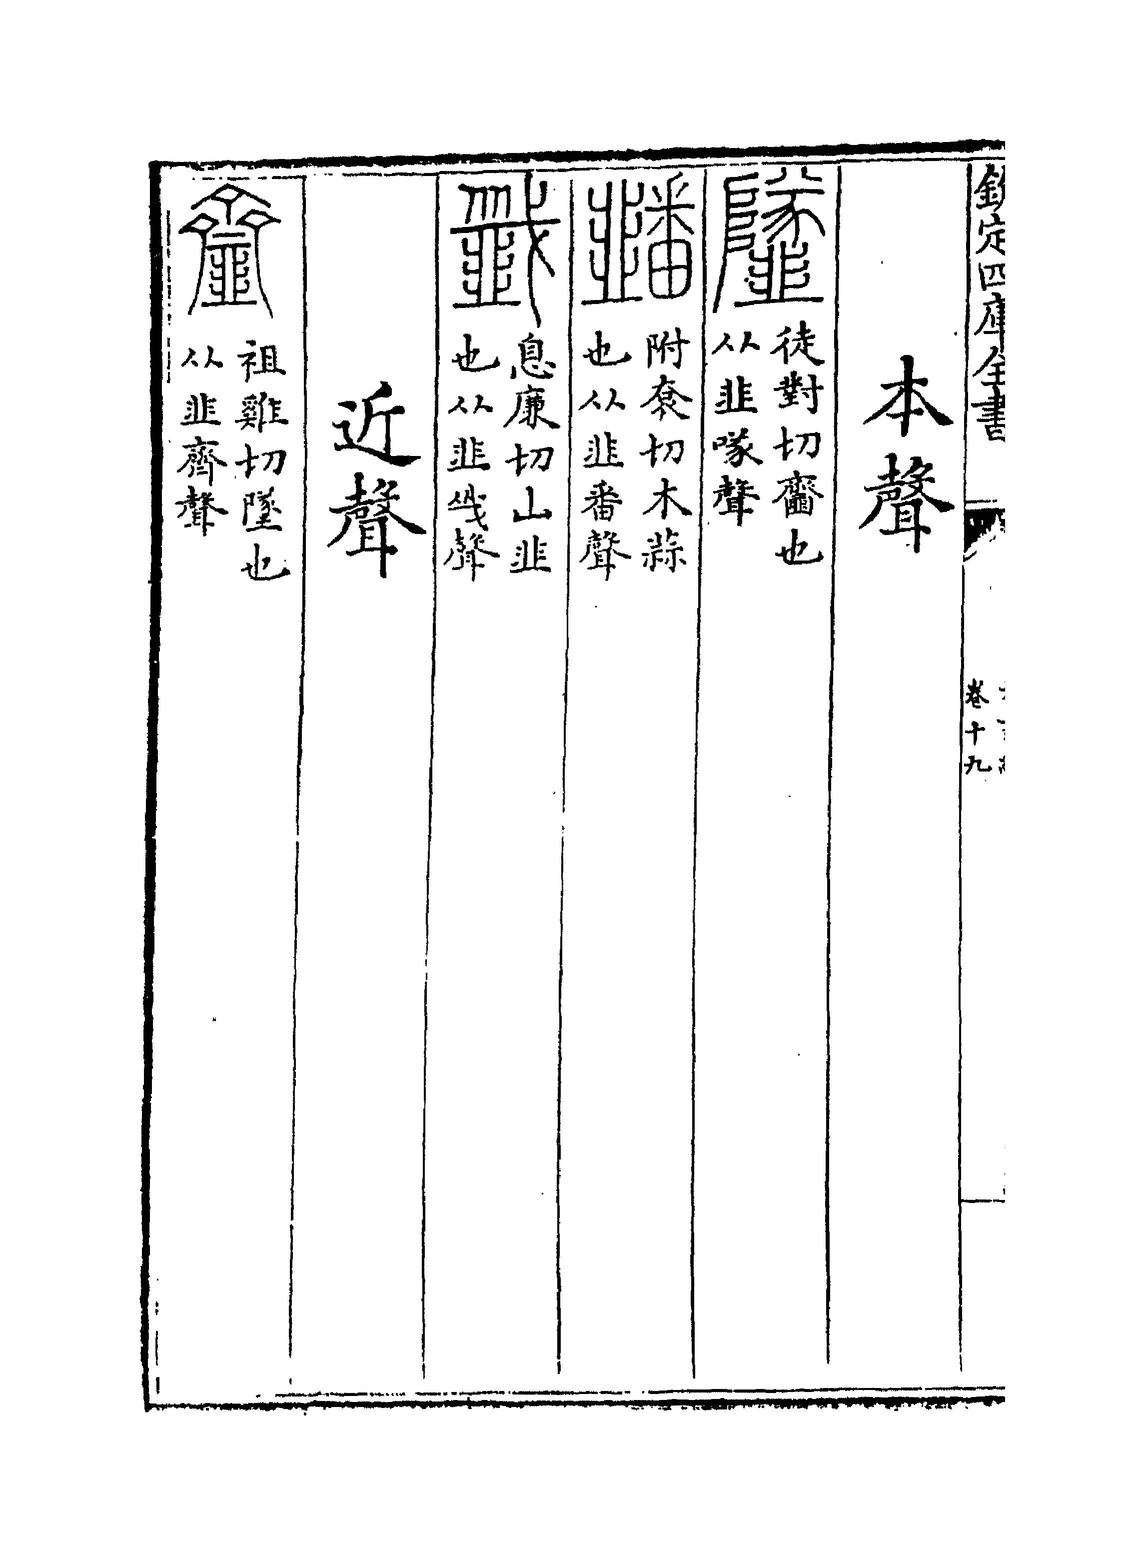 欽定四庫全書
卷十九
本聲
徒對切齏也
从韭隊聲
附袁切木蒜
也从韭番聲
韱
息廉切山韭
也从韭㦰聲
近聲
祖雞切墜也
从韭齊聲